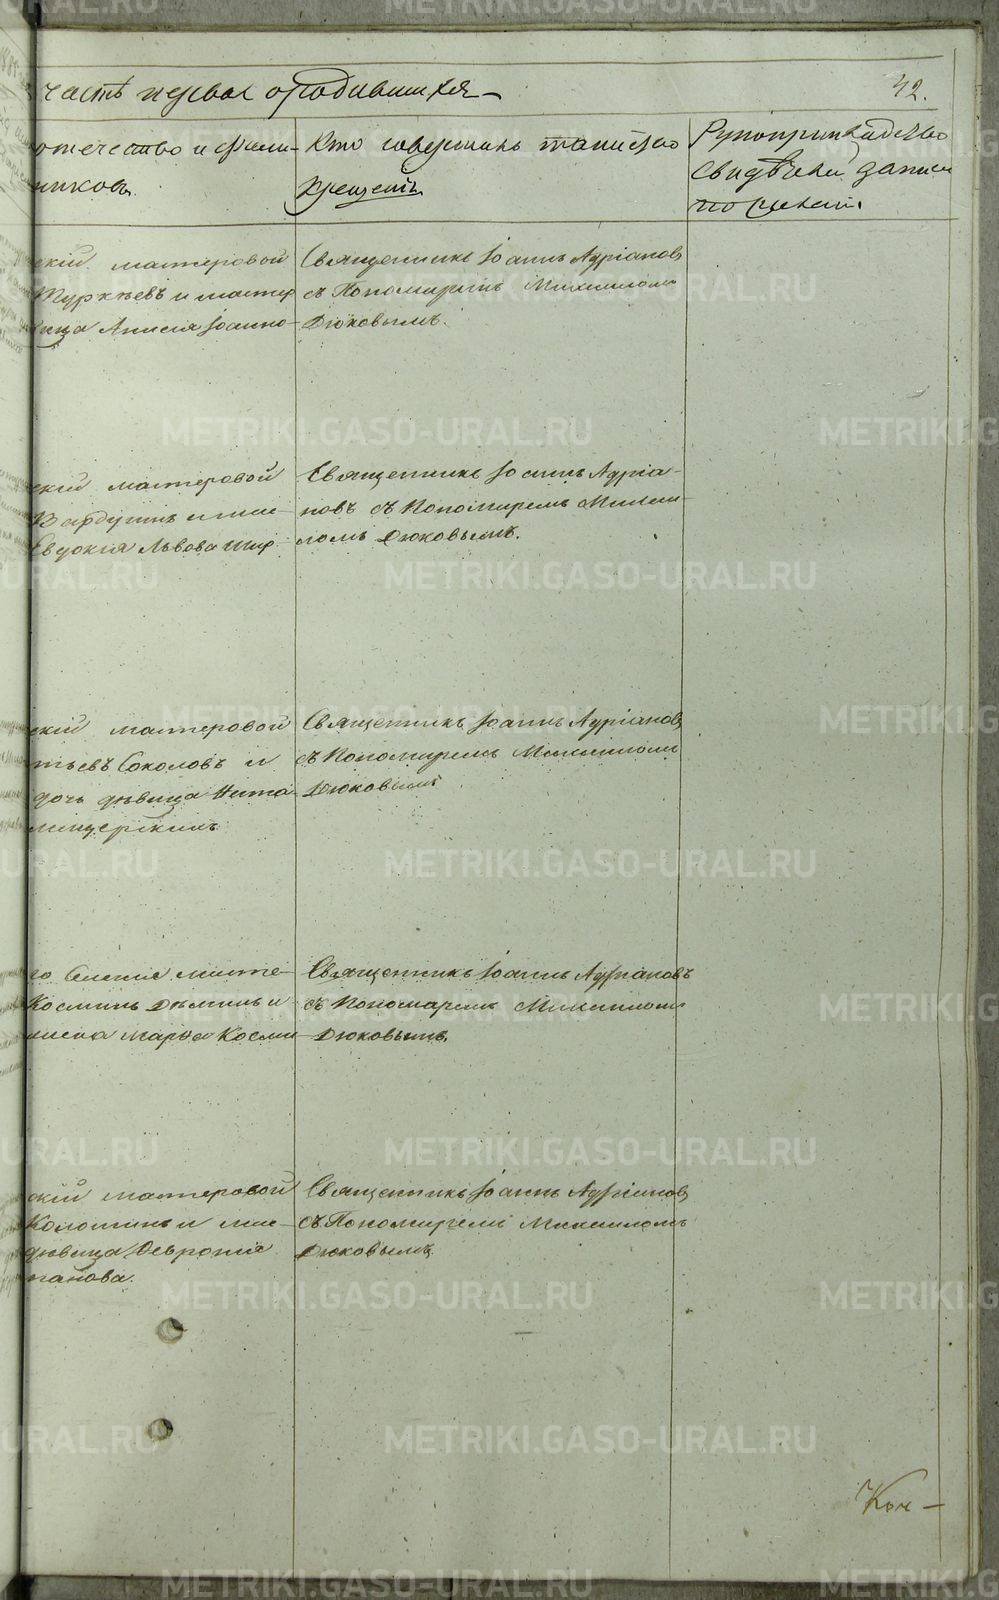 часть первая о родившихся
42.
отечество и фами-
никовъ.
Кто совершалъ таинство
крещенiя
Рукоприкладство
свидѣтелей записи
по желан.
скiй мастеровой
Туркѣевъ и мастер
вица Анисiя Iоанно-
Священникъ Iоаннъ Адрiановъ
съ Пономаремъ Михаиломъ
Дюковымъ.
скiй мастеровой
Вардугинъ и мас-
Евдокiя Львова мар
Священникъ Iоаннъ Адрiа-
новъ съ Пономаремъ Михаи-
ломъ Дюковымъ.
скiй мастеровой
тьевъ Соколовъ и
дочь дѣвица Ната-
мещерскимъ
Священникъ Iоаннъ Адрiановъ
съ Пономаремъ Михаиломъ
Дюковымъ
го Селенiя масте-
Косминъ Дѣминъ и
Марѳа Косми
Священникъ Iоаннъ Адрiановъ
съ Пономаремъ Михаиломъ
Дюковымъ.
скiй мастеровой
Коломинъ и мас-
дѣвица Февронiя
панова.
Священникъ Iоаннъ Адрiановъ
съ Пономаремъ Михаиломъ
Дюковымъ
Кон-
METRIKI.GASO-URAL.RU